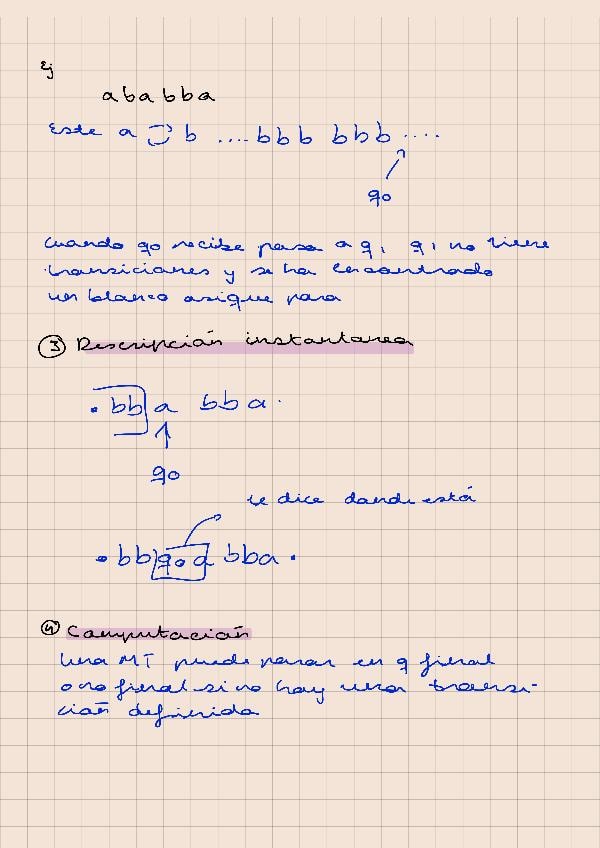 Ej
a b a b b a
Este a b .... b b b b b b ....
q0
cuando q0 recibe pasa a q1 q1 no tiene
transiciones y se ha encontrado
un blanco asique para
③ Descripción instantanea
. b b a b b a .
q0
se dice donde está
. b b q0 a b b a .
④ Computación
Una MT puede parar en q final
o no final si no hay una transi-
ción definida